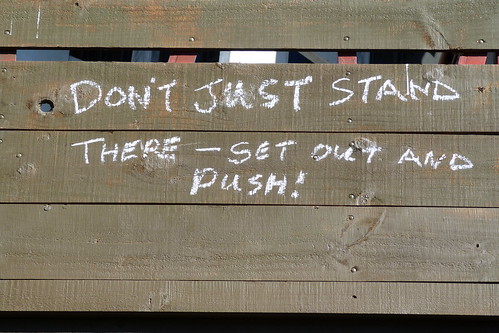 DON'T JUST STAND
THERE — GET OUT AND
PUSH!